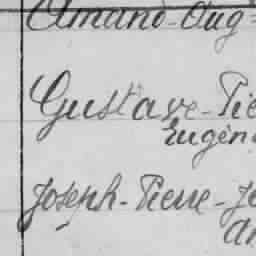 Amand-Aug
Gustave-Pie
Eugén
Joseph-Pierre-Je
An